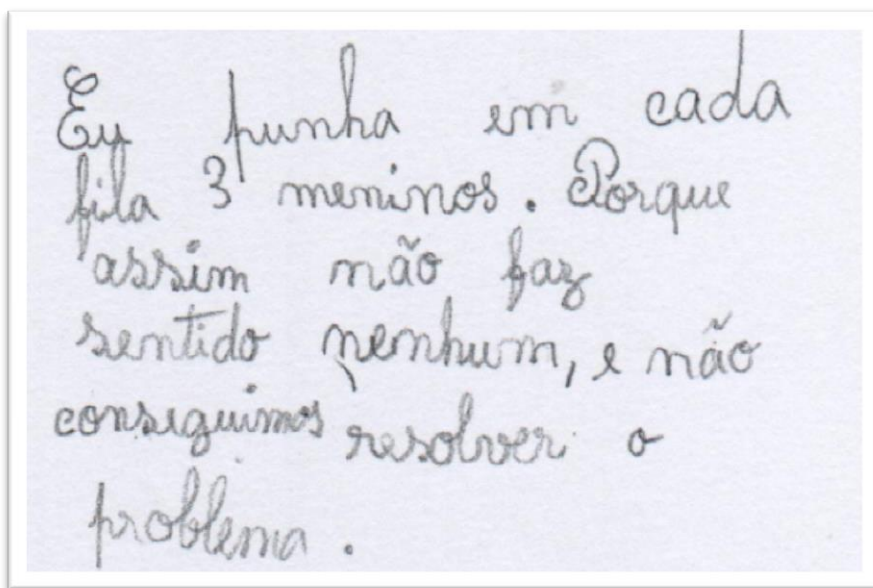 Eu punha em cada
fila 3 meninos. Porque
assim não faz
sentido nenhum, e não
conseguimos resolver o
problema.